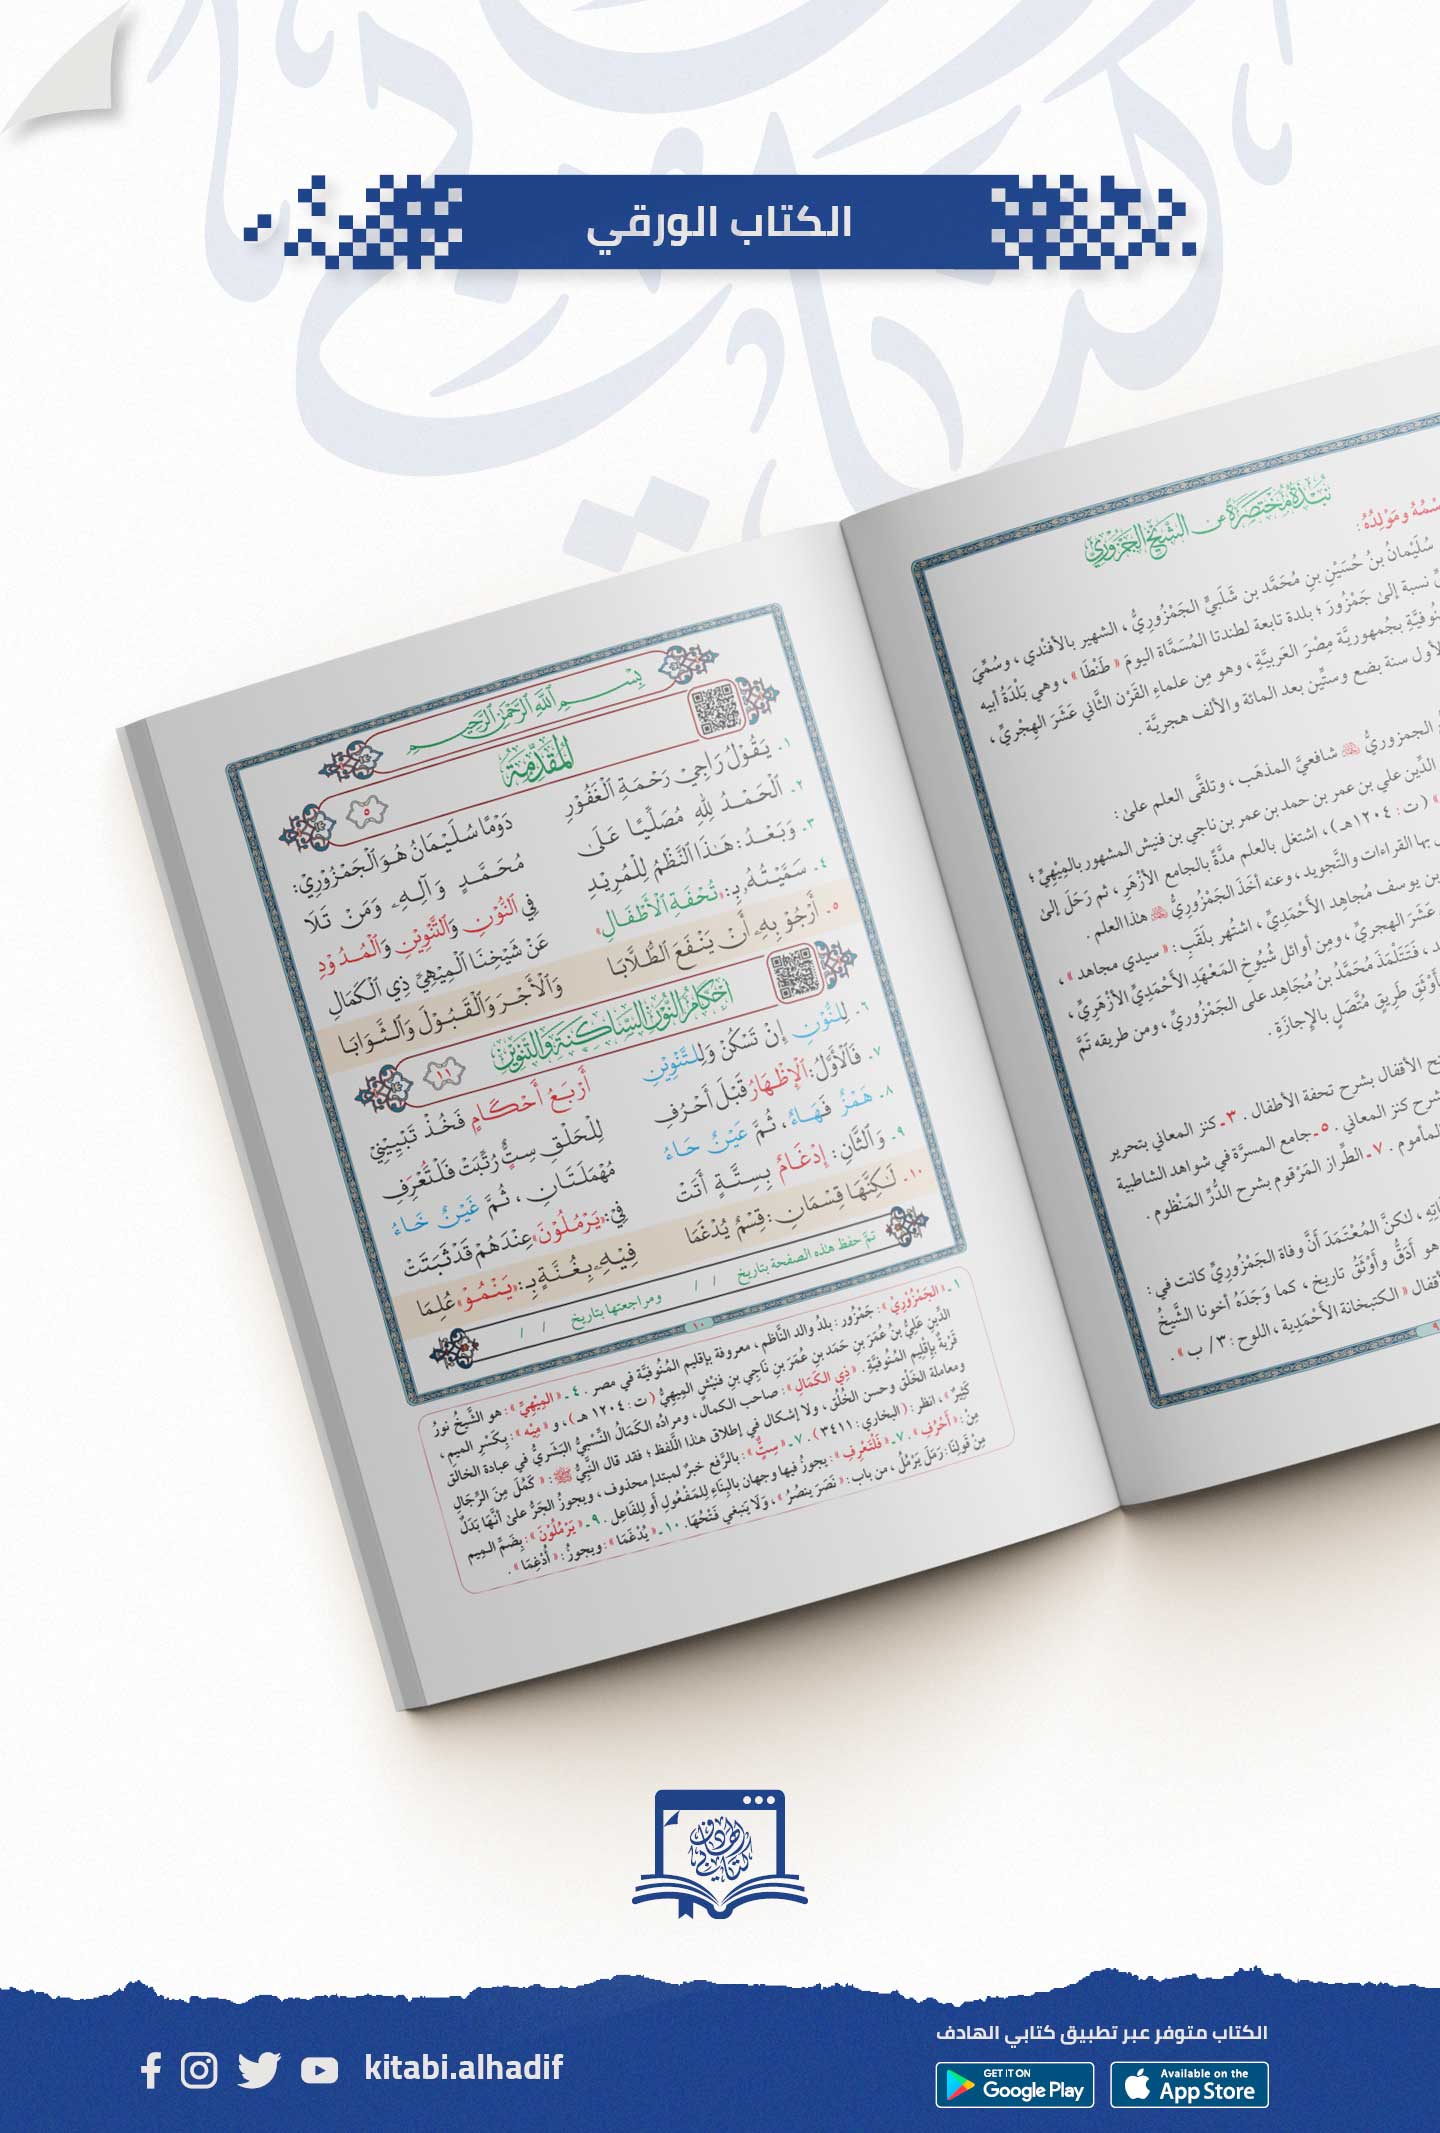 الكتاب الورقي
نُبْذَةٌ مُخْتَصَرَةٌ عن الشَّيْخِ الجَمْزُورِيِّ
ومَوْلِدُهُ :
سُلَيْمانُ بنُ حُسَيْنِ بنِ مُحَمَّد بن شَلَبيٍّ الجَمْزُورِيُّ ، الشهير بالأفنْدي ، وسُمِّيَ
نسبة إلىٰ جَمْزُورَ ؛ بلدة تابعة لطندتا المُسَمَّاة اليومَ « طَنْطَا » ، وهي بَلْدَةُ أبيه
بجُمهوريَّة مِصْرَ العَرَبيَّةِ ، وهو مِن علماءِ القَرْن الثَّاني عَشَرَ الهِجْريِّ ،
الأول سنة بضع وستِّين بعد المائة والألف هجريَّة .
الجمزوريُّ شافعيَّ المذهَب ، وتلقَّى العلم علىٰ :
الدِّين علي بن عمر بن حمد بن عمر بن ناجي بن فنيش المشهور بالمِيْهِيِّ ؛
( ت : ١٢٠٤هـ ) ، اشتغل بالعلم مدَّةً بالجامع الأزْهَرِ ، ثم رَحَلَ إلىٰ
بها القراءات والتَّجويد ، وعنه أخَذَ الجَمْزُوريُّ هذا العلم .
بن يوسف مُجاهِد الأحْمَديِّ ، اشتُهر بلَقَبِ : « سيدي مجاهد » ،
عَشَرَ الهجريِّ ، ومِن أوائل شُيُوخِ المَعْهَدِ الأحْمَديِّ الأزْهَرِيِّ ،
فَتَتَلْمَذَ مُحَمَّدُ بنُ مُجَاهِد على الجَمْزُوريِّ ، ومن طريقه تَمَّ
أوْثَقِ طَرِيقٍ مُتَّصَلٍ بالإجازَةِ .
الأقفال بشرح تحفة الأطفال . ٣ـ كنز المعاني بتحرير
شرح كنز المعاني . ٥ـ جامع المسرَّة في شواهد الشاطبية
المأموم . ٧ـ الطِّراز المَرْقوم بشرح الدُّرِّ المَنْظوم .
لكنَّ المُعْتَمَدَ أنَّ وفاة الجَمْزُوريِّ كانت في :
هو أدَقُّ وأوْثَقُ تاريخ ، كما وَجَدَهُ أخونا الشَّيخُ
« الكتبخانة الأحْمَدِية ، اللوح : ٣/ ب » .
٩
بِسْمِ ٱللَّهِ ٱلرَّحْمَٰنِ ٱلرَّحِيمِ
المُقَدِّمَةُ
٥
١ـ يَقُوْلُ رَاجِيْ رَحْمَةِ الْغَفُوْرِ دَوْمًا سُلَيْمَانُ هُوَ الْجَمْزُوْرِيْ:
٢ـ الْحَمْدُ لِلهِ مُصَلِّيًا عَلَى مُحَمَّدٍ وَآلِهِ وَمَنْ تَلَا
٣ـ وَبَعْدُ : هَذَا النَّظْمُ لِلْمُرِيْدِ فِي النُّوْنِ وَالتَّنْوِيْنِ وَالْمُدُوْدِ
٤ـ سَمَّيْتُهُ بِـ : «تُحْفَةِ الْأَطْفَالِ» عَنْ شَيْخِنَا الْمِيْهِيِّ ذِي الْكَمَالِ
٥ـ أَرْجُوْ بِهِ أَنْ يَنْفَعَ الطُّلَّابَا وَالْأَجْرَ وَالْقَبُوْلَ وَالثَّوَابَا
أَحْكَامُ النُّوْنِ السَّاكِنَةِ وَالتَّنْوِيْنِ
١١
٦ـ لِلنُّوْنِ إِنْ تَسْكُنْ وَلِلتَّنْوِيْنِ أَرْبَعُ أَحْكَامٍ فَخُذْ تَبْيِيْنِيْ
٧ـ فَالْأَوَّلُ : الْإِظْهَارُ قَبْلَ أَحْرُفِ لِلْحَلْقِ سِتٌّ رُتِّبَتْ فَلْتُعْرَفِ
٨ـ هَمْزٌ فَهَاءٌ ، ثُمَّ عَيْنٌ حَاءُ مُهْمَلَتَانِ ، ثُمَّ غَيْنٌ خَاءُ
٩ـ وَالثَّانِ : إِدْغَامٌ بِسِتَّةٍ أَتَتْ فِيْ : «يَرْمُلُوْنَ» عِنْدَهُمْ قَدْ ثَبَتَتْ
١٠ـ لَكِنَّهَا قِسْمَانِ : قِسْمٌ يُدْغَمَا فِيْهِ بِغُنَّةٍ بِـ : «يَنْمُوْ» عُلِمَا
تمَّ حفظ هذه الصفحة بتاريخ / / ومراجعتها بتاريخ / /
١٠
١ـ « الجَمْزُوْرِيْ » : جَمْزُور : بلدُ والد النَّاظم ، معروفة بإقليم المُنُوفيَّة في مصر . ٤ـ « المِيْهِيِّ » : هو الشَّيخُ نورُ
الدِّين عَلِيُّ بنُ عُمَرَ بنِ حَمَدِ بنِ عُمَرَ بنِ نَاجِي بنِ فنيْشٍ المِيهِيُّ ( ت : ١٢٠٤ هـ ) ، و « مِيْه » : بِكَسْرِ الميم ،
قَرْيَةٌ بإقْلِيمِ المُنُوفيَّةِ . « ذِي الكَمَالِ » : صاحب الكمال ، ومرادُه الكَمَالُ النِّسْبيُّ البَشَريُّ في عبادة الخالق
ومعاملة الخَلْق وحسن الخُلُق ، ولا إشكال في إطلاق هذا اللَّفظ ؛ فقد قال النَّبيُّ ﷺ : « كَمُلَ مِنَ الرِّجَالِ
كَثِيرٌ » ، انظر : ( البخاري : ٣٤١١ ) . ٧ـ « سِتٌّ » : بالرَّفع خبرٌ لمبتدإٍ محذوف ، ويجوزُ الجَرُّ علىٰ أنَّهَا بَدَلٌ
مِنْ : « أَحْرُفِ » . ٧ـ « فَلْتُعْرَفِ » : يجوزُ فيها وجهان بالبِنَاءِ لِلمَفْعُولِ أو لِلفَاعِل . ٩ـ « يَرْمُلُوْنَ » : بِضَمِّ الميم
مِنْ قَولِنَا : رَمَلَ يَرْمُلُ ، من باب : « نَصَرَ ينصُرُ » ، وَلَا يَنبغي فَتْحُهَا . ١٠ـ « يُدْغَمَا » : ويجوزُ : « أُدْغِمَا » .
كتابي الهادف
الكتاب متوفر عبر تطبيق كتابي الهادف
kitabi.alhadif
GET IT ON
Google Play
Available on the
App Store